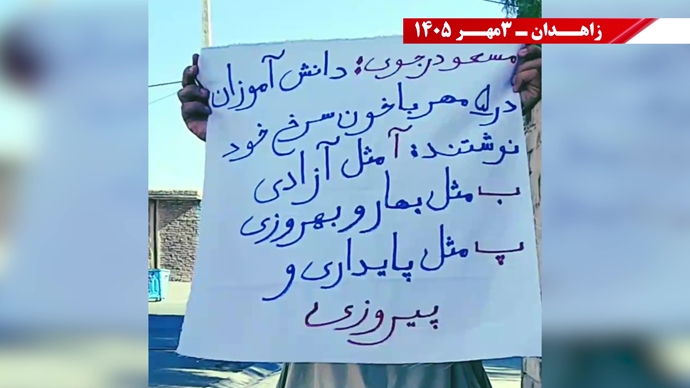 زاهـدان ـ ۳مهـر ۱۴۰۵
مسعود رجوی: دانش آموزان
در ۵ مهر با خون سرخ خود
نوشتند: آ مثل آزادی
ب مثل بهار و بهروزی
پ مثل پایداری و
پیروزی